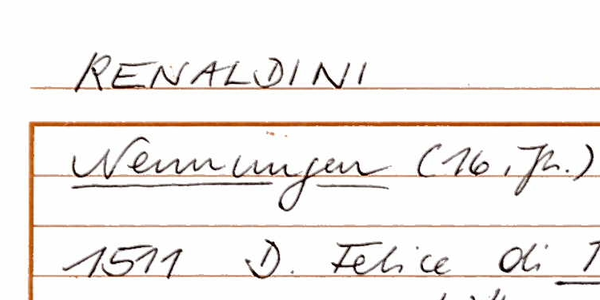 RENALDINI
Nennungen (16. Jh.)
1511 D. Felice di